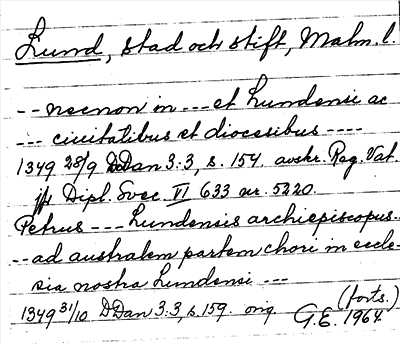 Lund, stad och stift, Malm. l.
-- necnon in --- et Lundensi ac
--- ciuitatibus et diocesibus ----
1349 28/9 DDan 3:3, s. 154 avskr. Reg. Vat.
jfr Dipl. Svec. VI 633 nr. 5220.
Petrus --- Lundensis archiepiscopus --
-- ad australem partem chori in eccle-
sia nostra Lundensi ---
1349 31/10 DDan 3:3, s. 159. orig
(forts.)
G.E. 1964